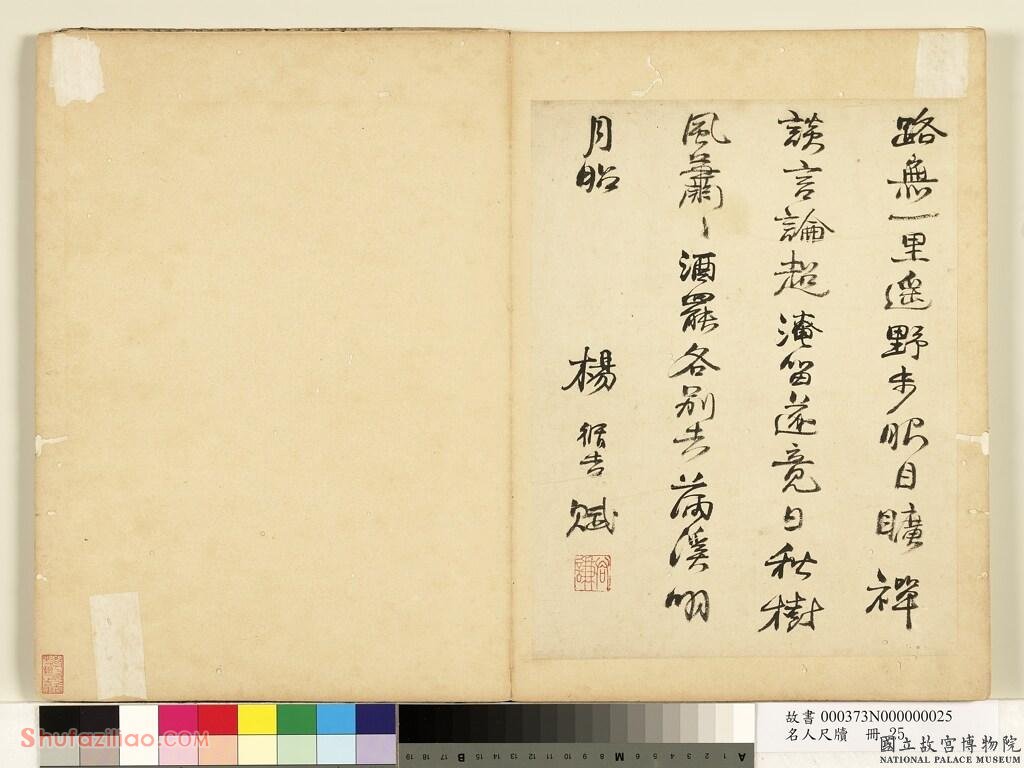 路無一里遥野步眼目曠禪
談言論超淹留遂竟日秋樹
風蕭〻酒罷各別去滿溪明
月昭
楊 循吉 賦
故書 000373N000000025
名人尺牘 冊 25
國立故宮博物院
NATIONAL PALACE MUSEUM
Shufaziliao.COM